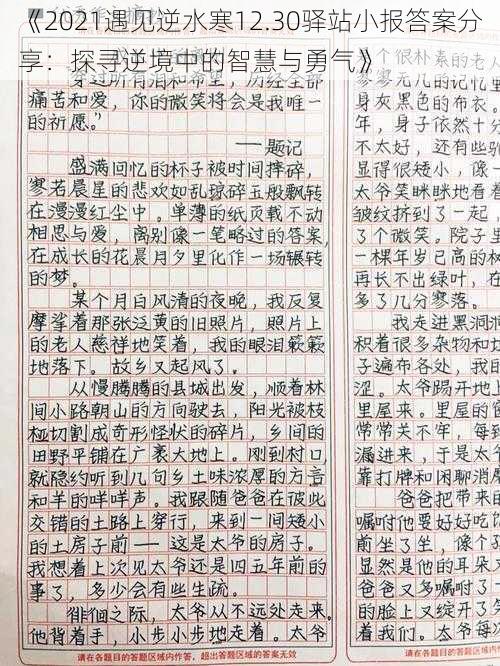 《2021遇见逆水寒12.30驿站小报答案分
享：探寻逆境中的智慧与勇气》
痛苦和爱，你的微笑将会是我唯一
的祈愿。”
——题记
盛满回忆的杯子被时间摔碎，
寥若晨星的悲欢如乱琼碎玉般飘转
在漫漫红尘中。单薄的纸页载不动
相思与爱，离别像一笔略过的答案，
在成长的花晨月夕里化作一场辗转
的梦。
某个月白风清的夜晚，我反复
摩挲着那张泛黄的旧照片，照片上
的老人慈祥地笑着，我的眼泪簌簌
地落下。故乡又起风了。
从慢腾腾的县城出发，顺着林
间小路朝山的方向驶去，阳光被枝
桠切割成奇形怪状的碎片，乡间的
田野平铺在广袤大地上。刚到村口，
就隐约听到几句乡土味浓厚的方言
和羊的咩咩声。我跟随爸爸在彼此
交错的土路上穿行，来到一间矮小
的房子前——这是太爷的房子。
我想着上次见太爷还是四五年前的
事了，多少会有些生疏。
徘徊之际，太爷从不远处走来。
他背着手，小步小步地走着。太爷
请在各题目的答题区域内作答，超出答题区域的答案无效
个很朴素的老人
寥寥无几的记忆
身灰黑色的布衣。
年，身子依然十分
不太好，还有些驼
显得很矮小，像一
太爷笑眯眯地看着
皱纹挤到了一起
了个微笑。院子里
一棵年岁已高的树
再长不出绿叶，在
多了几分寥落。
我走进黑洞洞
积着很多杂物和
子遍布各处，我
涩。太爷踢开
里屋来。里屋的
常常关不严，每到
漏进来，于是太爷
靠打牌和闲聊
爸爸把带来
嘱咐他要好好吃
前坐了坐，像
显然是他的耳朵
爸爸又多嘱咐
的脸上又绽
我们准备走
请在各题目的答题区域内